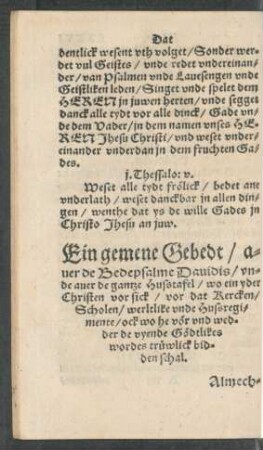 Dat
dentlick wesent vth volget/Sonder wer-
det vul Geistes/ vnde redet vndereinan-
der/van Psalmen vnde Lauesengen vnde
Geistliken leden/Singet vnde spelet dem
HEREN in juwen herten/vnde segget
danck alle tydt vor alle dinck/Gade vn-
de dem Vader/in dem namen vnses HE-
REN Jhesu Christi/vnd weset vnder-
einander vnderdan in dem fruchten Ga-
des.
j. Thessalo: v.
Weset alle tydt frölick/bedet ane
vnderlath/weset danckbar in allen din-
gen/wenthe dat ys de wille Gades jn
Christo Jhesu an juw.
Ein gemene Gebedt/a-
uer de Bedepsalme Dauidis/vn-
de auer de gantze Husotafel/wo ein yder
Christen vor sick/vor dat Kercken/
Scholen/werltlike vnde Husregi-
mente/ock wo he vör vnd wed-
der de vyende Gödtlikes
wordes trüwlick bid-
den schal.
Almech-